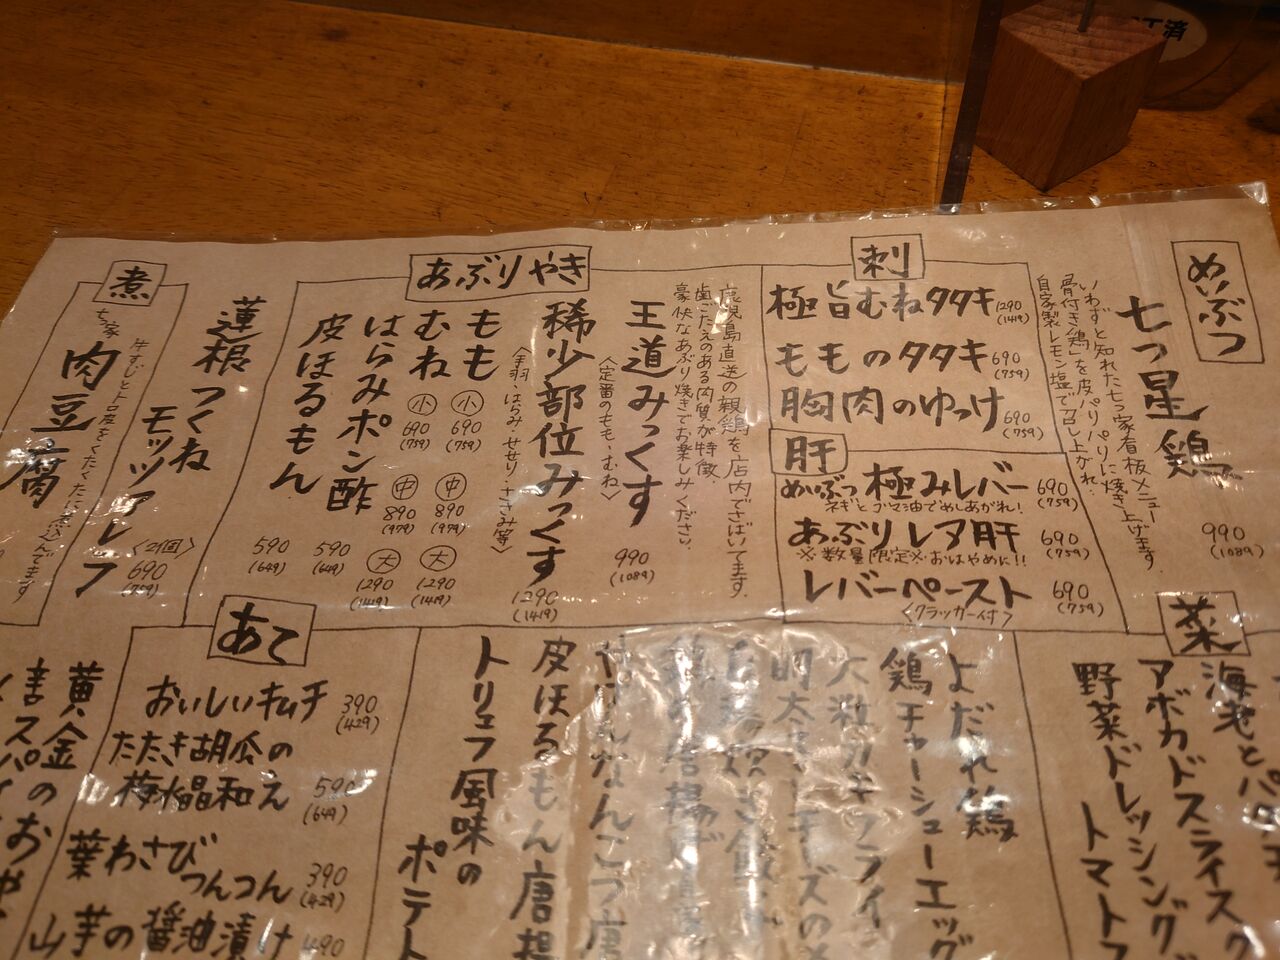 めいぶつ
七つ星鶏
990
(1089)
いわずと知れた七つ家看板メニュー
骨付き鶏」を皮パリパリに焼き上げます。
自家製レモン塩で召し上がれ。
刺
極旨むねタタキ 1290
(1419)
もものタタキ 690
(759)
胸肉のゆっけ 690
(759)
肝
めいぶつ 極みレバー 690
(759)
ネギとゴマ油でめしあがれ!
あぶりレア肝 690
(759)
※数量限定※おはやめに!!
レバーペースト 690
(759)
<クラッカー付>
あぶりやき
鹿児島直送の親鶏を店内でさばいてます。
歯ごたえのある肉質が特徴
豪快なあぶり焼きでお楽しみください。
王道みっくす
990
(1089)
<定番のもも、むね>
稀少部位みっくす
1290
(1419)
<手羽・はらみ・せせり・ささみ等>
もも
小
690
(759)
中
890
(979)
大
1290
(1419)
むね
小
690
(759)
中
890
(979)
大
1290
(1419)
はらみポン酢
590
(649)
皮ほるもん
590
(649)
蓮根つくね
モッツァレラ
<2個>
690
(759)
煮
七つ家
肉豆腐
菜
海老と
アボカドスライス
野菜ドレッシング
トマト
よだれ鶏
鶏チャーシューエッグ
大粒カキフライ
皮ほるもん唐揚
トリュフ風味の
ポテト
あて
おいしいキムチ 390
(429)
たたき胡瓜の
梅水晶和え 590
(649)
葉わさび
つんつん 390
(429)
山芋の醤油漬け 490
黄金